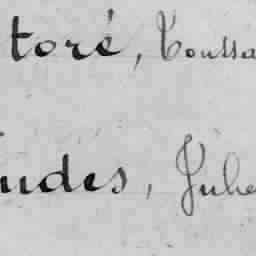 toré, Toussa
udes, Jule